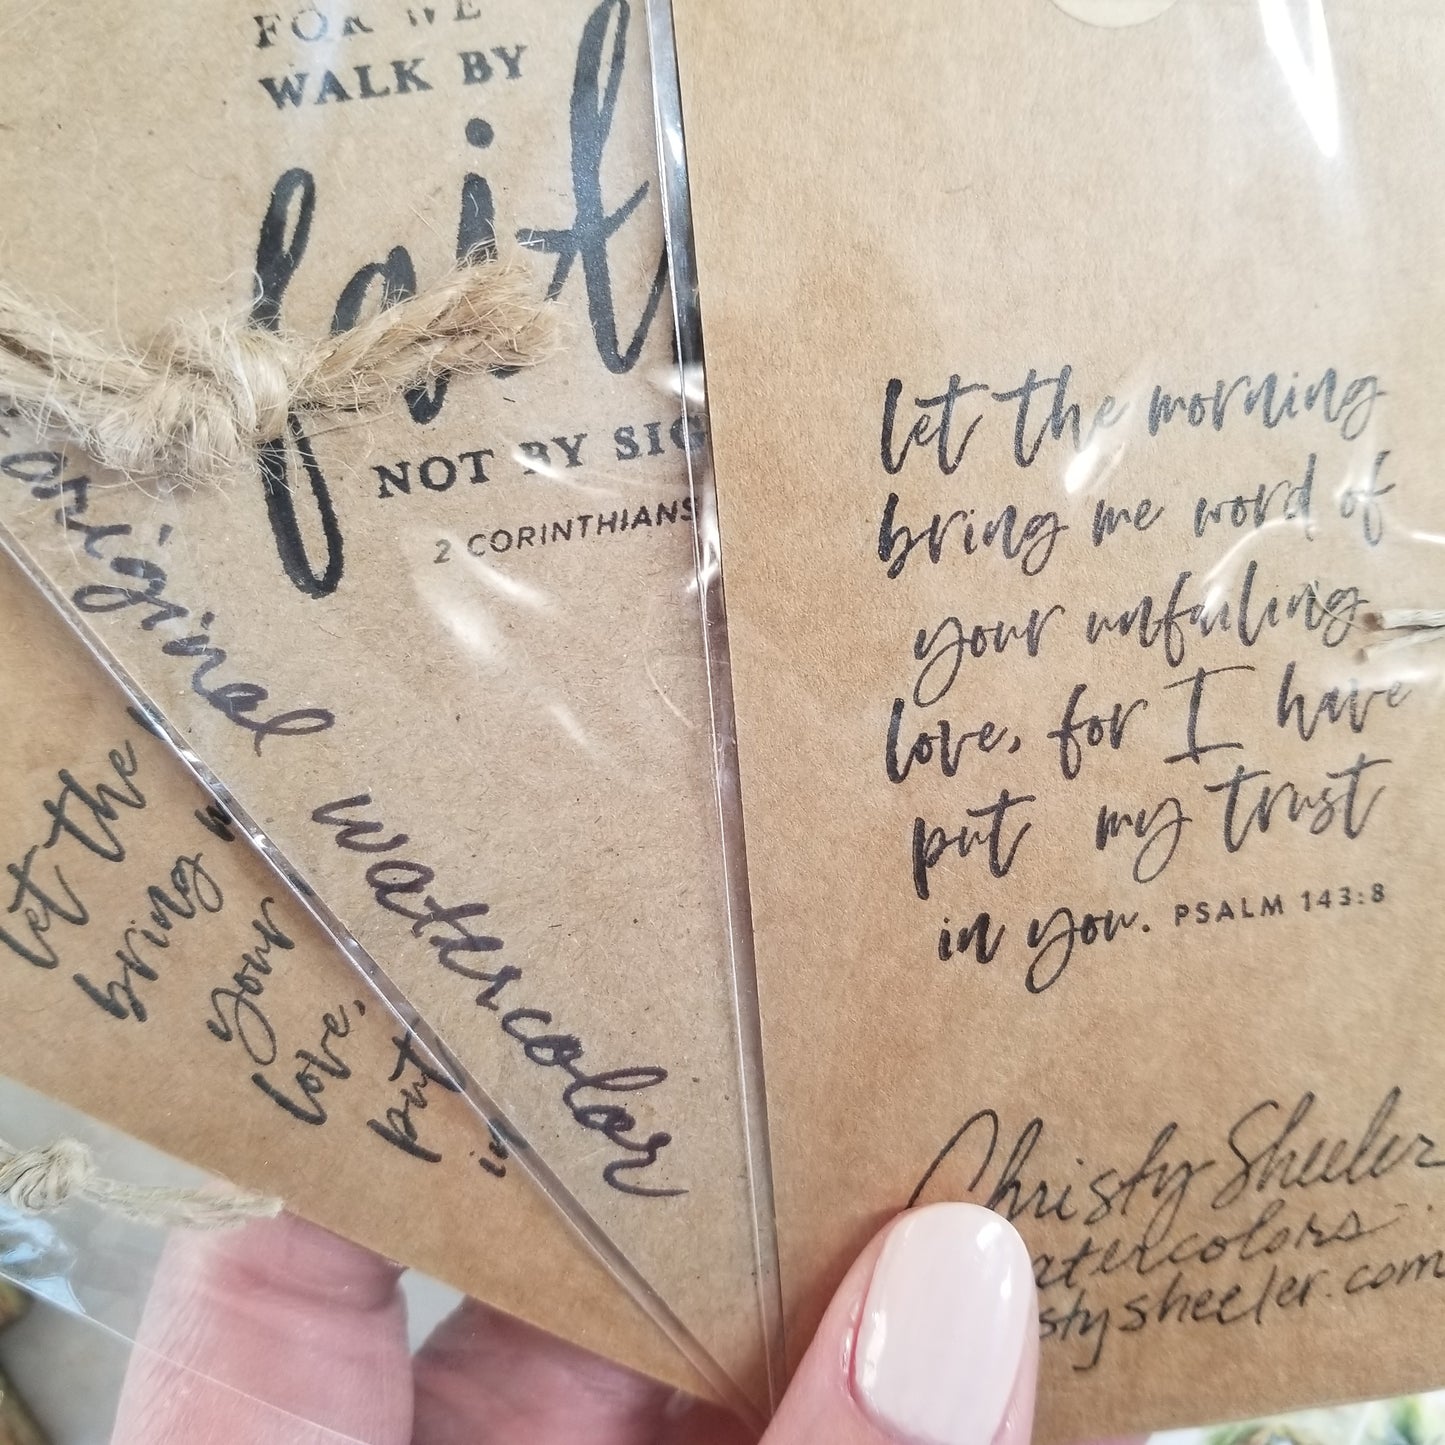 FOR WE
WALK BY
fait
NOT BY SIG
2 CORINTHIANS
original
watercolor
let the
bring
your
love,
put
in
let the morning
bring me word of
your unfailing
love, for I have
put my trust
in you. PSALM 143:8
Christy Sheeler
atercolors
stysheeler.com